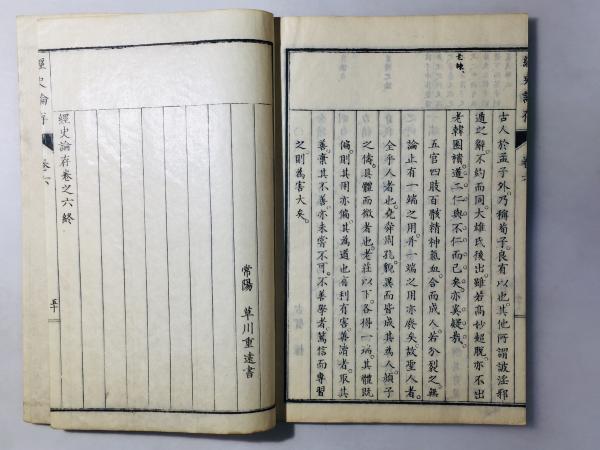 經史論存 卷六
古人於孟子外。乃稱荀子。良有以也。其他所謂詖淫邪
遁之辭。不約而同。大雄氏後出。雖若高妙超脫。亦不出
老韓 道二。仁與不仁而已矣。亦奚疑哉。
五官四肢百骸精神氣血。合而成人。若分裂之。無
論止有一端之用。并一端之用亦廢矣。故聖人者。
全乎人者也。堯舜周孔。貌異而皆成其為人。顏子
之儔。具體而微者也。老莊以下。各得一端。其體既
偏。則其用亦偏。其為道也。有利有害。善 者。取其
善。棄其不善。亦未嘗不可。不善學者。篤信而專習
之。則為害大矣。
常陽 草川重遠書
經史論存卷之六終
經史論存 卷六
五十